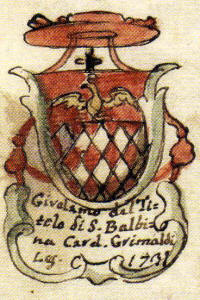 Girolamo del Ti-
tolo di S. Balbi-
na Card. Grimaldi
Leg. 1731